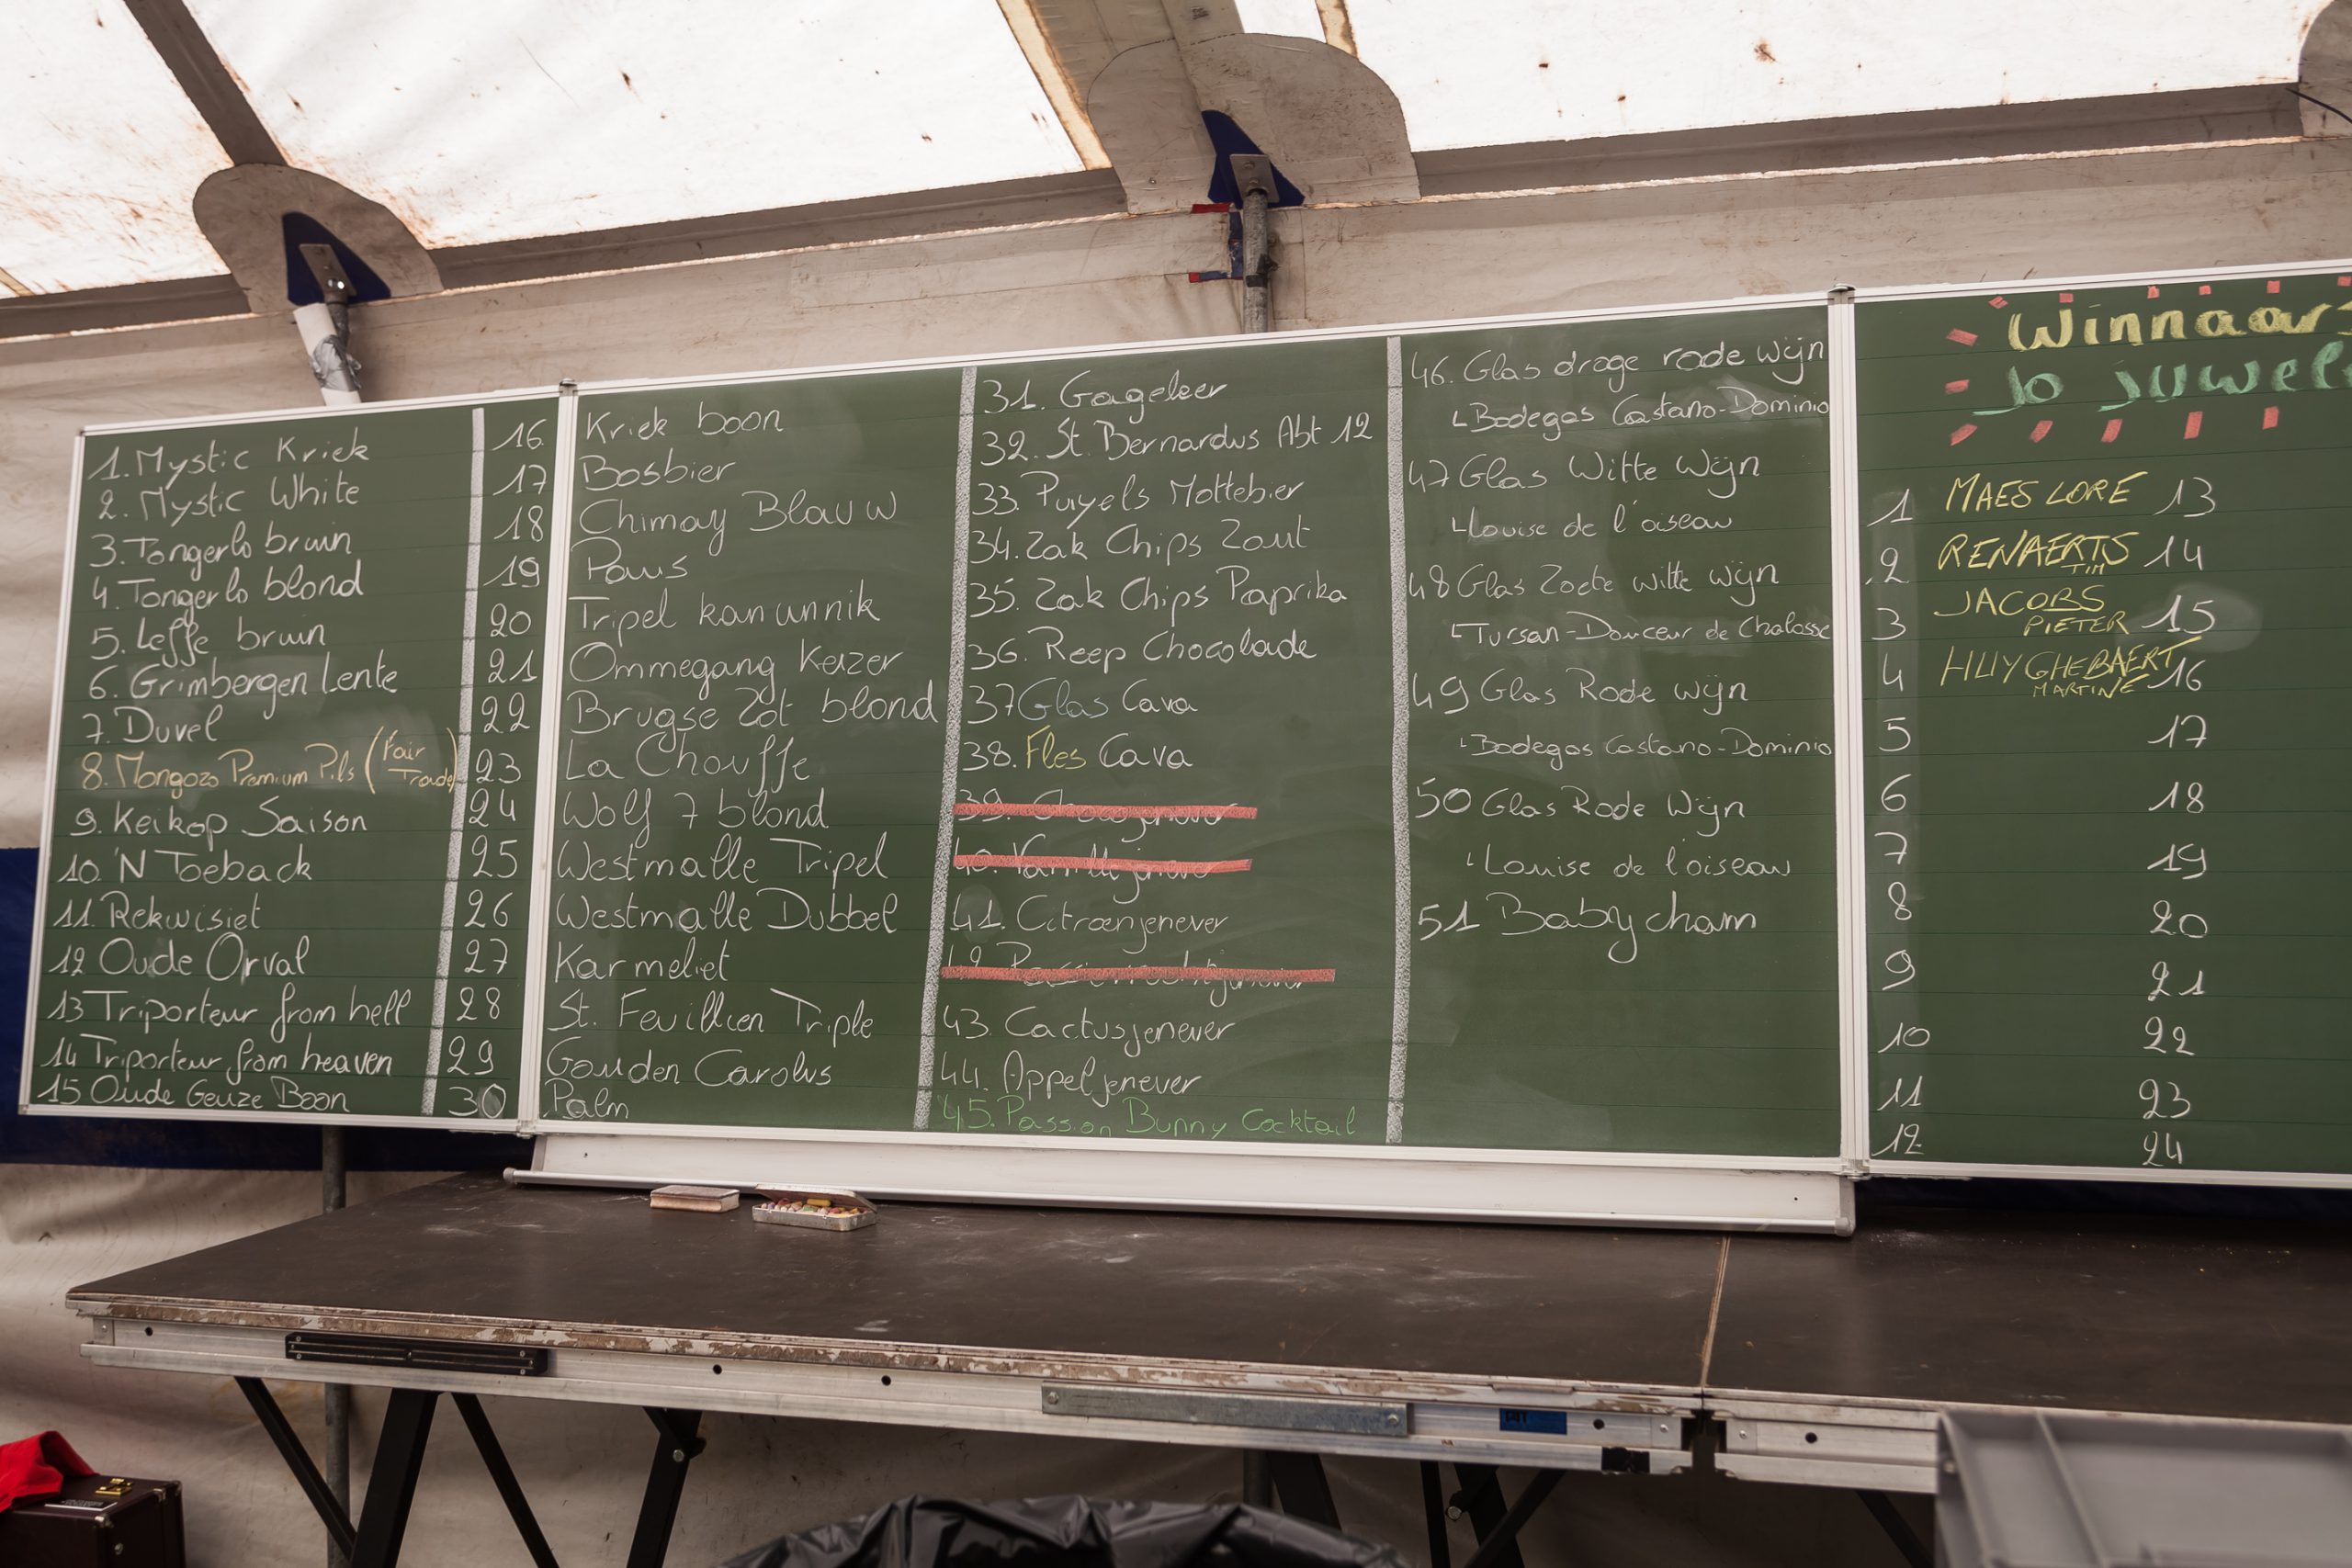 1. Mystic Kriek
2. Mystic White
3. Tongerlo bruin
4. Tongerlo blond
5. Leffe bruin
6. Grimbergen Lente
7. Duvel
8. Mongozo Premium Pils (Fair Trade)
9. Keikop Saison
10. 'N Toeback
11. Rekwisiet
12 Oude Orval
13 Triporteur from hell
14 Triporteur from heaven
15 Oude Geuze Boon
16. Kriek boon
17 Bosbier
18 Chimay Blauw
19 Paus
20 Tripel kanunnik
21 Ommegang Keizer
22 Brugse Zot blond
23 La Chouffe
24 Wolf 7 blond
25 Westmalle Tripel
26 Westmalle Dubbel
27 Karmeliet
28 St. Feuillien Triple
29 Gouden Carolus
30 Palm
31. Gageleer
32. St. Bernardus Abt 12
33. Puyels Mottebier
34. Zak Chips Zout
35. Zak Chips Paprika
36. Reep Chocolade
37 Glas Cava
38. Fles Cava
39.
40.
41. Citroenjenever
43. Cactusjenever
44. Appeljenever
45. Passion Bunny Cocktail
46. Glas droge rode wijn
Bodegas Castano-Dominio
47 Glas Witte Wijn
Louise de l'oiseau
48 Glas Zoete witte wijn
Tursan-Douceur de Chalosse
49 Glas Rode wijn
Bodegas Castano-Dominio
50 Glas Rode Wijn
Louise de l'oiseau
51 Babycham
Winnaars
Jo Juweel
1 MAES LORE 13
2 RENAERTS TIM 14
3 JACOBS PIETER 15
4 HUYGHEBAERT MARTINE 16
5 17
6 18
7 19
8 20
9 21
10 22
11 23
12 24